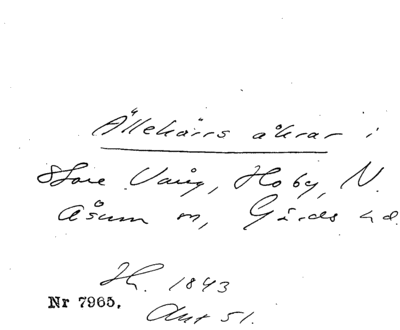 Ällekärrs åkrar i
Store Vång, Hoby, N.
Åsum sn, Gärds hd.
Hr. 1843
Nr 7965.
Akt 51.